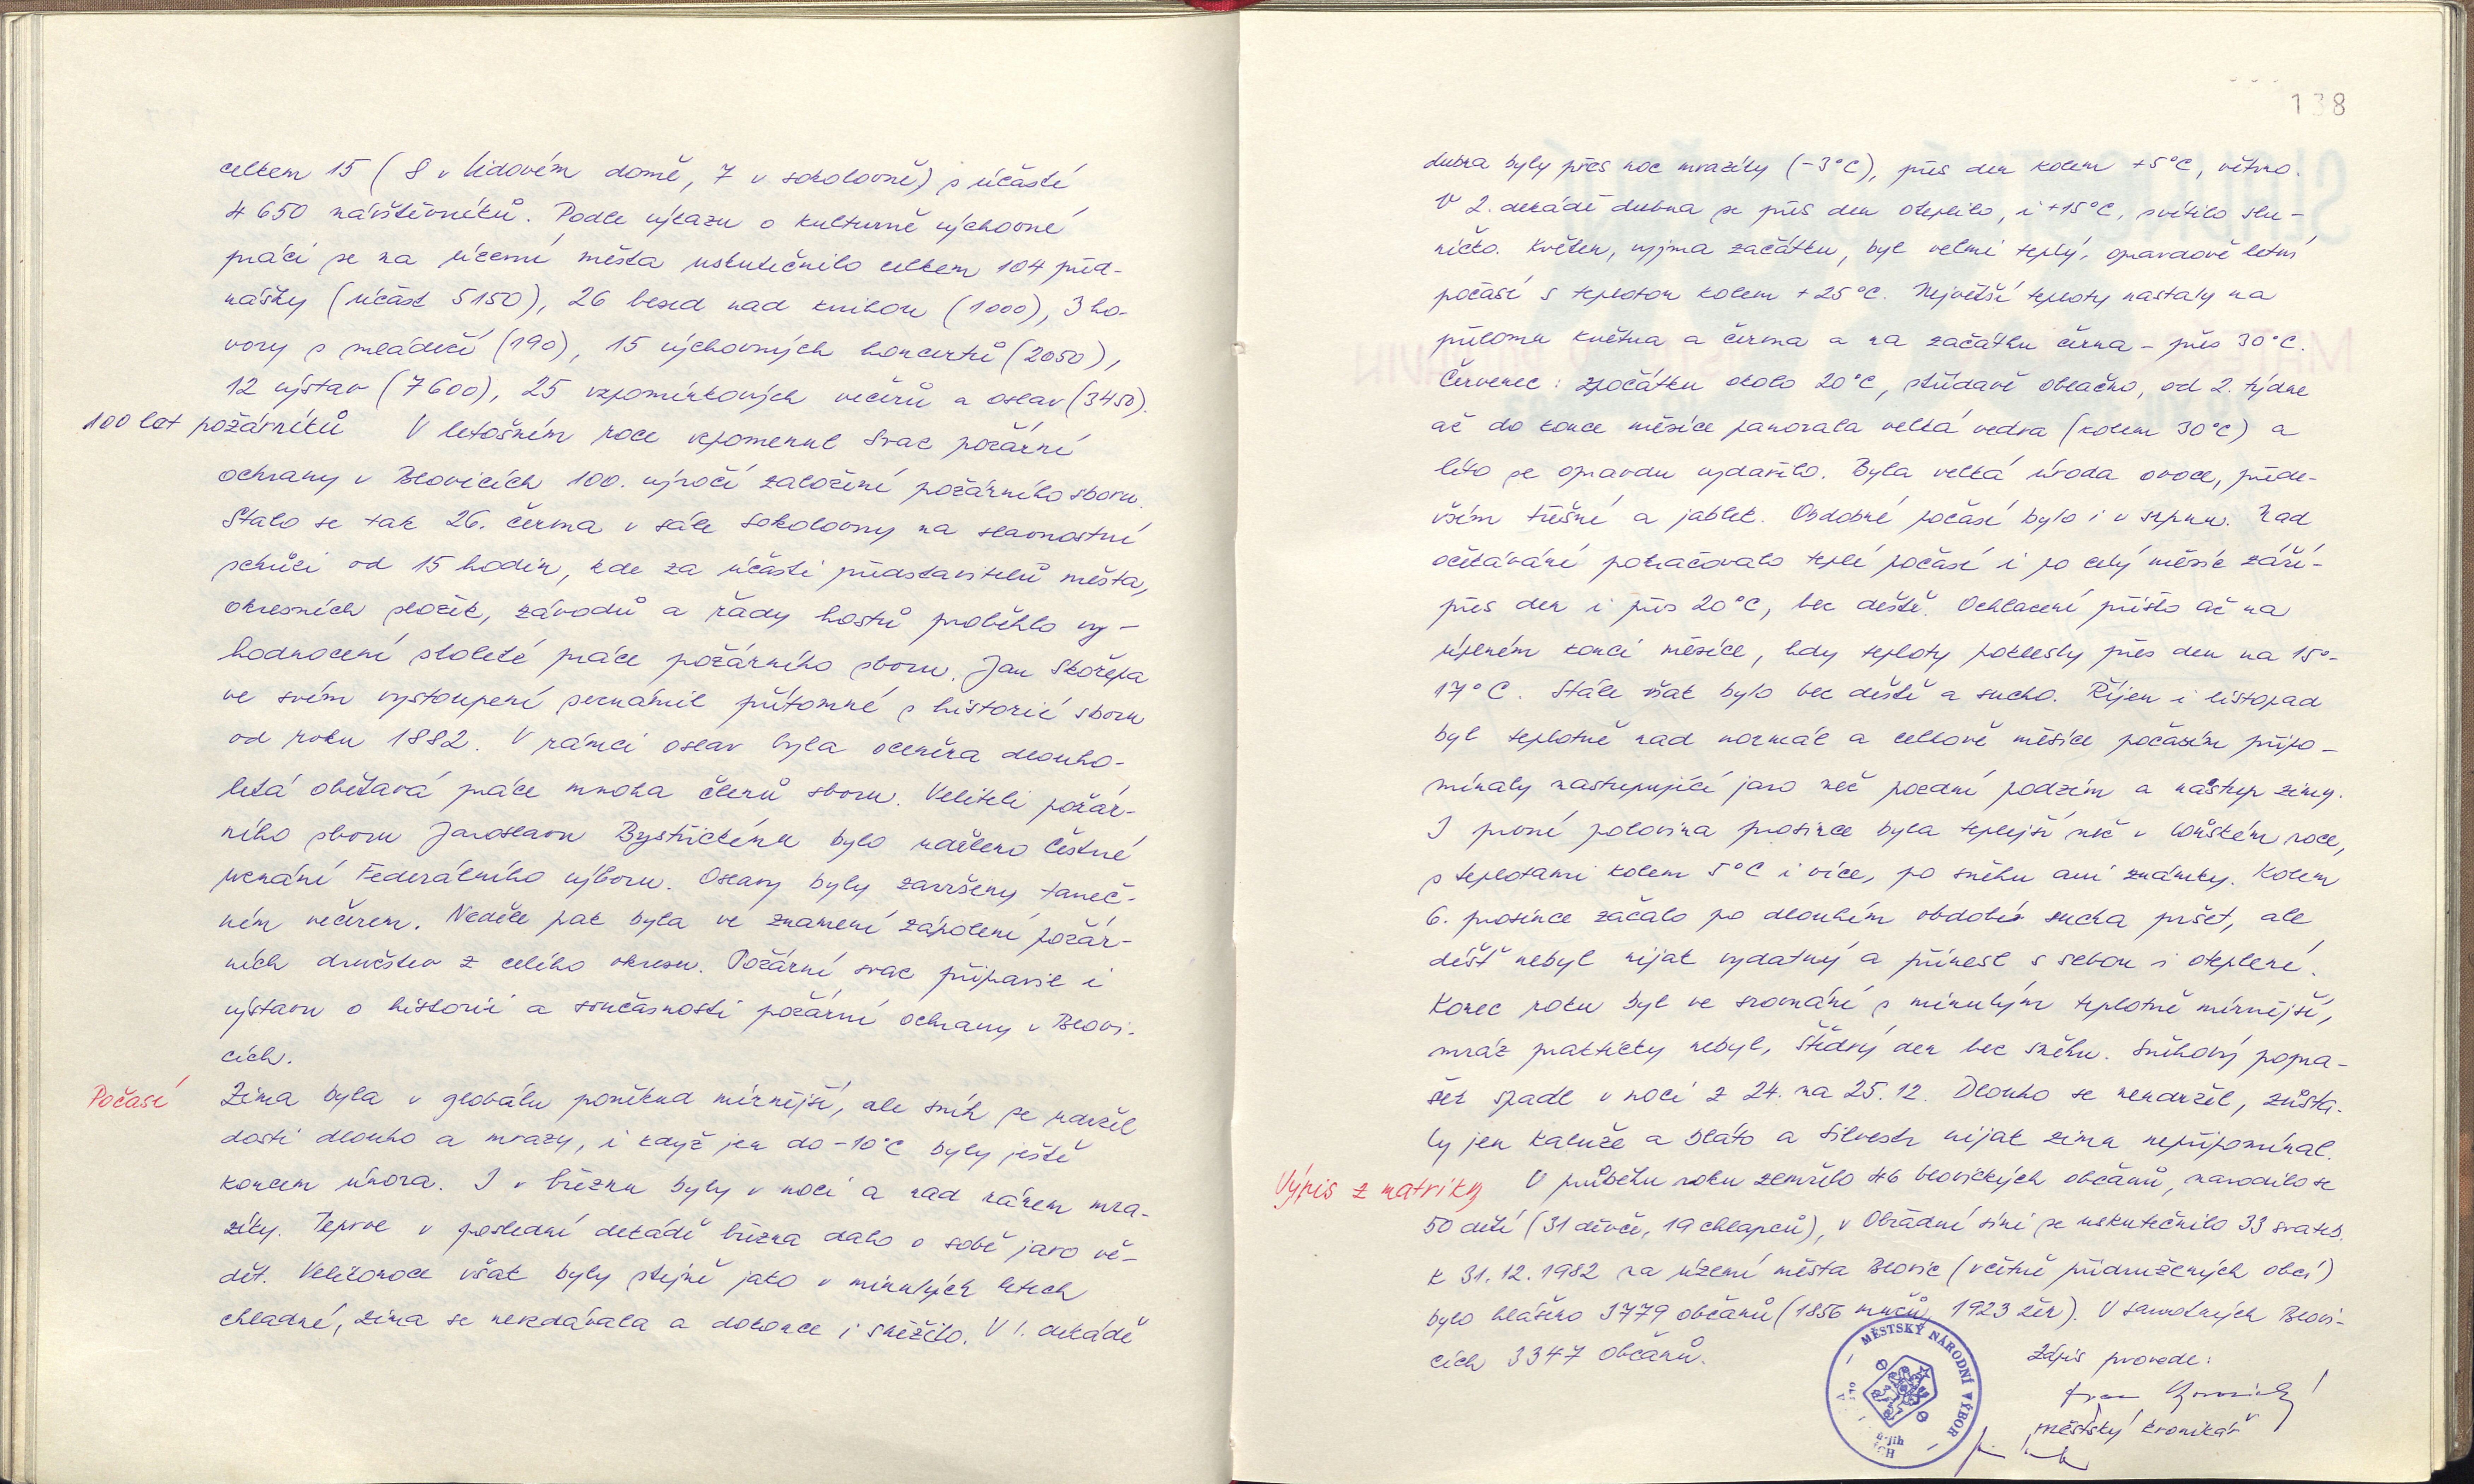 celkem 15 (8 v Lidovém domě, 7 v sokolovně) s účastí
4 650 návštěvníků. Podle výkazu o kulturně výchovné
práci se na území města uskutečnilo celkem 104 před-
nášky (účast 5150), 26 besed nad knihou (1000), 3 ho-
vory s mládeží (190), 15 výchovných koncertů (2050),
12 výstav (7600), 25 vzpomínkových večerů a oslav (3450).
100 let požárníků V letošním roce vzpomenul Svaz požární
ochrany v Blovicích 100. výročí založení požárního sboru.
Stalo se tak 26. června v sále Sokolovny na slavnostní
schůzi od 15 hodin, kde za účasti představitelů města,
okresních složek, závodů a řady hostů proběhlo vy-
hodnocení stoleté práce požárního sboru. Jan Skořepa
ve svém vystoupení seznámil přítomné s historií sboru
od roku 1882. V rámci oslav byla oceněna dlouho-
letá obětavá práce mnoha členů sboru. Veliteli požár-
ního sboru Jaroslavu Bystřickému bylo uděleno Čestné
uznání Federálního výboru. Oslavy byly završeny taneč-
ním večerem. Neděle pak byla ve znamení zápolení požár-
ních družstev z celého okresu. Požární svaz připravil i
výstavu o historii a současnosti požární ochrany v Blovi-
cích.
Počasí Zima byla v globálu poněkud mírnější, ale sníh se udržel
dosti dlouho a mrazy, i když jen do -10°C byly ještě
koncem února. I v březnu byly v noci a nad ránem mra-
zíky. Teprve v poslední dekádě března dalo o sobě jaro vě-
dět. Velikonoce však byly stejně jako v minulých letech
chladné, zima se nevzdávala a dokonce i sněžilo. V 1. dekádě
138
dubna byly přes noc mrazíky (-3°C), přes den kolem +5°C, větrno.
V 2. dekádě dubna se přes den oteplilo, i +15°C, svítilo slu-
níčko. Květen, vyjma začátku, byl velmi teplý, opravdově letní
počasí s teplotou kolem +25°C. Největší teploty nastaly na
přelomu května a června a na začátku června - přes 30°C.
Červenec: zpočátku okolo 20°C, střídavě oblačno, od 2. týdne
až do konce měsíce panovala velká vedra (kolem 30°C) a
léto se opravdu vydařilo. Byla velká úroda ovoce, přede-
vším třešní a jablek. Obdobné počasí bylo i v srpnu. Nad
očekávání pokračovalo teplé počasí i po celý měsíc září -
přes den i přes 20°C, bez deště. Ochlazení přišlo až na
úplném konci měsíce, kdy teploty poklesly přes den na 15°-
17°C. Stále však bylo bez deště a sucho. Říjen i listopad
byl teplotně nad normál a celkově měsíce počasím připo-
mínaly nastupující jaro než pozdní podzim a nástup zimy.
I první polovina prosince byla teplejší než v loňském roce,
s teplotami kolem 5°C i více, po sněhu ani známky. Kolem
6. prosince začalo po dlouhém období sucha pršet, ale
déšť nebyl nijak vydatný a přinesl s sebou i oteplení.
Konec roku byl ve srovnání s minulým teplotně mírnější,
mráz prakticky nebyl, Štědrý den bez sněhu. Sněhový popra-
šek spadl v noci z 24. na 25. 12. Dlouho se neudržel, zůsta-
ly jen kaluže a bláto a Silvestr nijak zimu nepřipomínal.
Výpis z matriky V průběhu roku zemřelo 46 blovických občanů, narodilo se
50 dětí (31 děvče, 19 chlapců), v Obřadní síni se uskutečnilo 33 svateb.
K 31. 12. 1982 na území města Blovic (včetně přidružených obcí)
bylo hlášeno 3779 občanů (1856 mužů, 1923 žen). V samotných Blovi-
cích 3347 občanů.
MĚSTSKÝ NÁRODNÍ VÝBOR
Zápis provedl:
městský kronikář